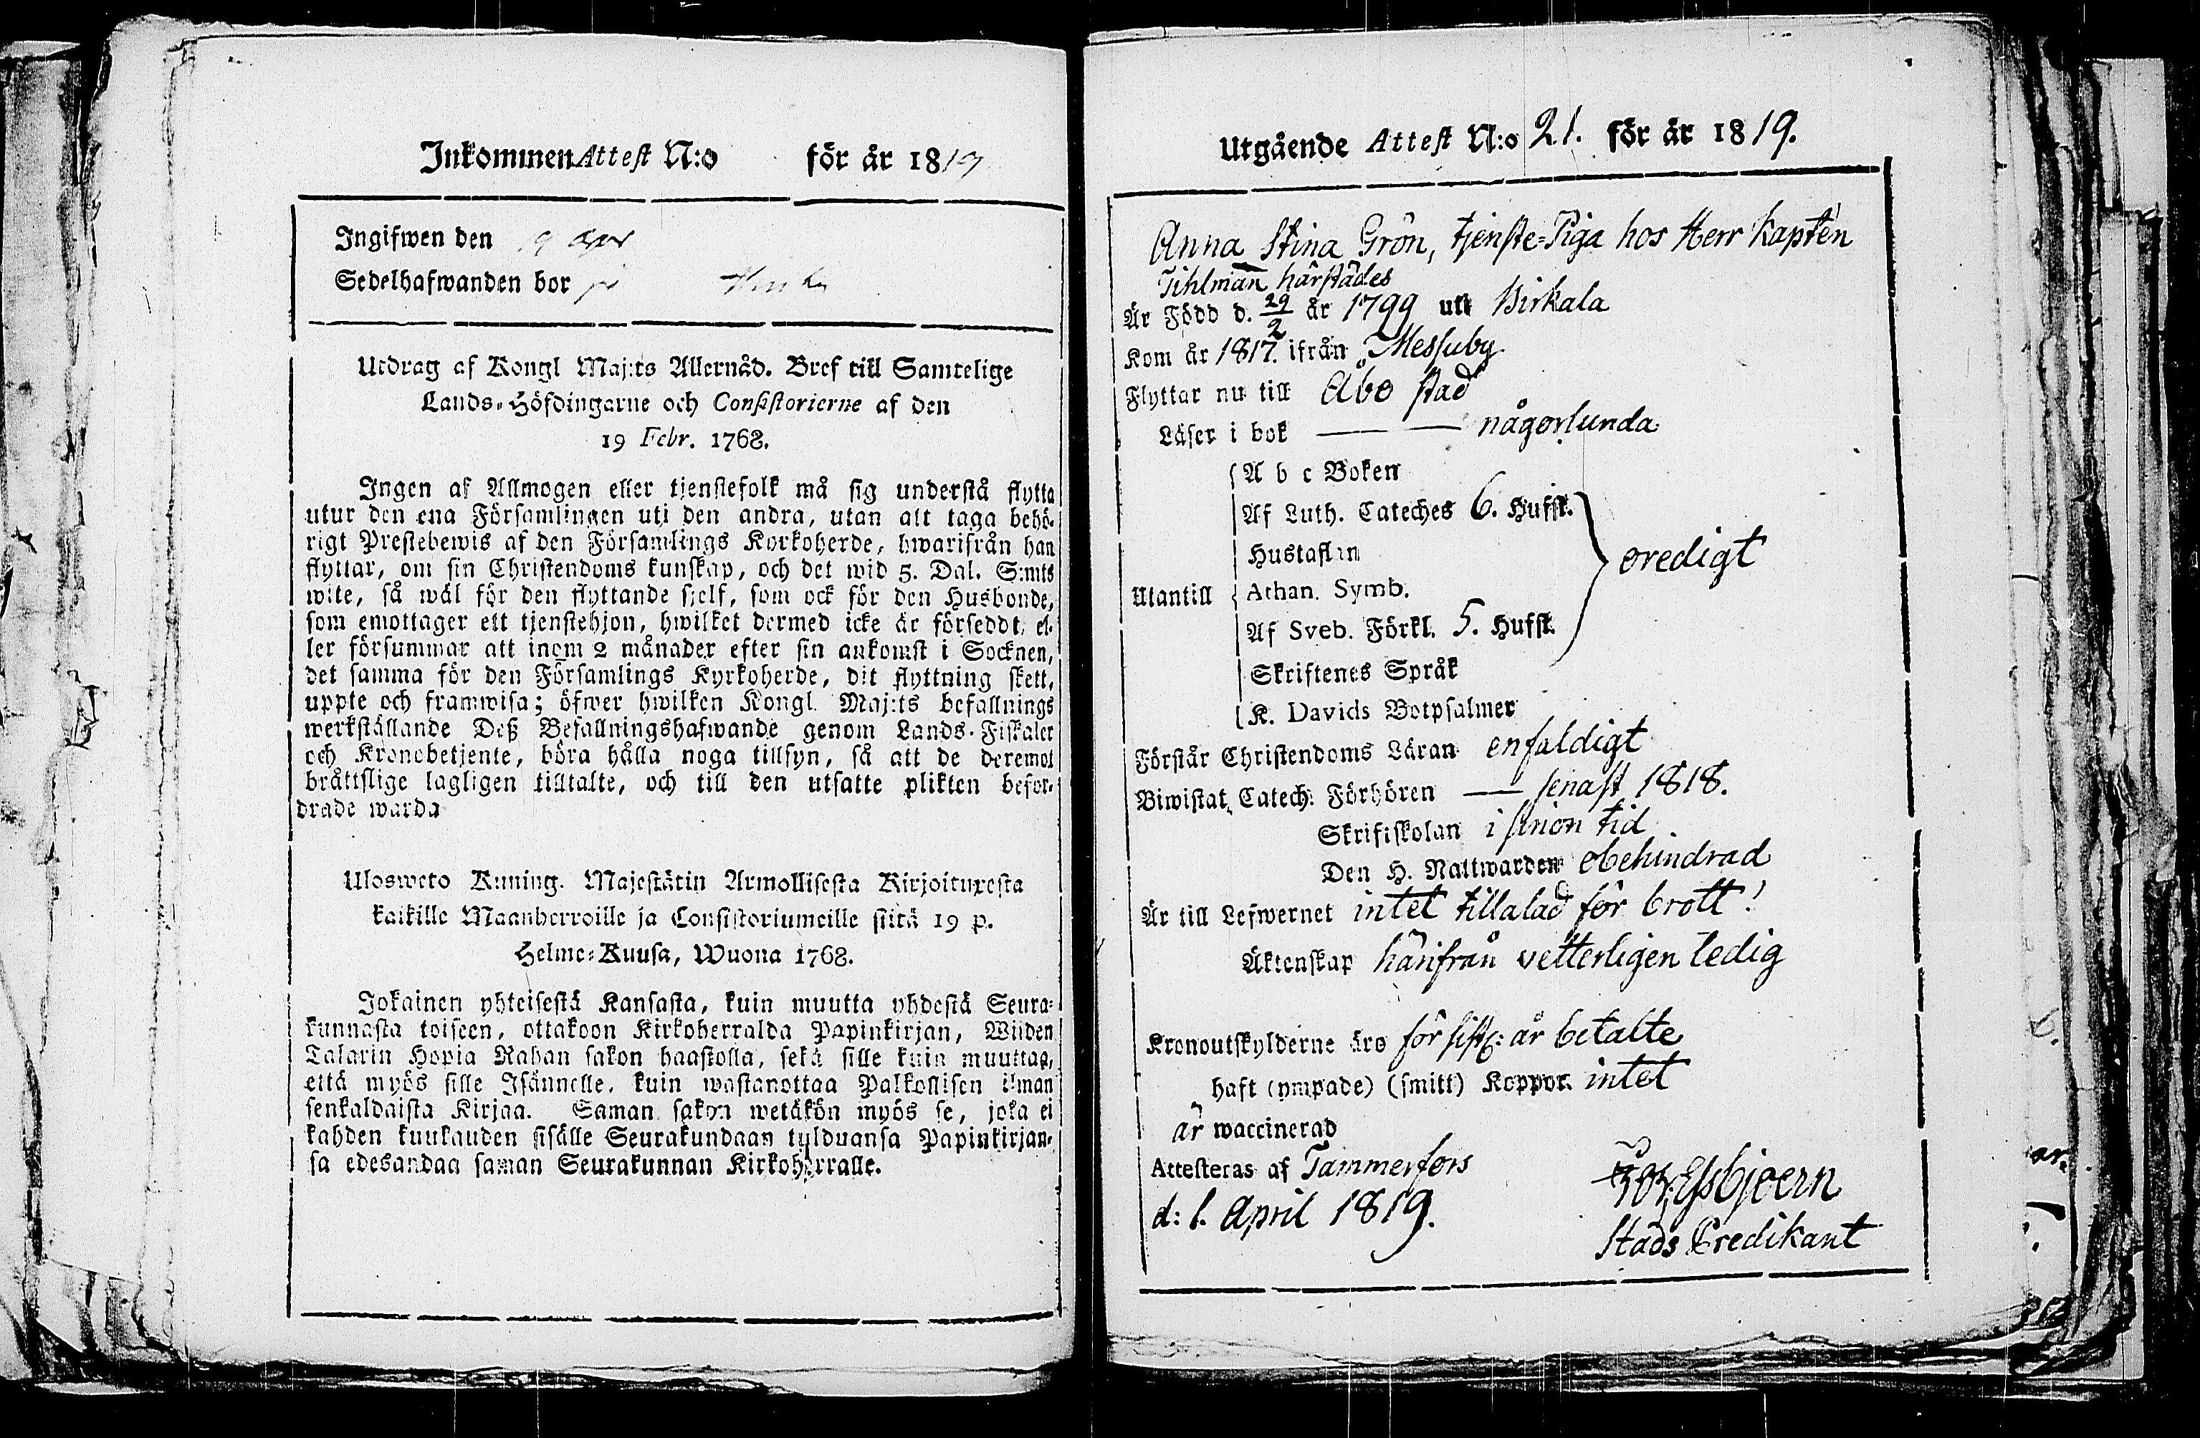 Inkommen Attest N:o för år 1819
Ingifwen den 19 Apr
Sedelhafwanden bor
Utdrag af Kongl Maj:ts Allernåd. Bref till Samtelige
Lands-Höfdingarne och Consistorierne af den
19 Febr. 1768.
Ingen af Allmogen eller tjenstefolk må sig understå flytta
utur den ena Församlingen uti den andra, utan att taga behö-
rigt Prestebewis af den Församlings Korkoherde, hwarifrån han
flyttar, om sin Christendoms kunskap, och det wid 5. Dal. S:mts
wite, så wäl för den flyttande sjelf, som ock för den Husbonde,
som emottager ett tjenstehjon, hwilket dermed icke är förseddt, el-
ler försummar att inom 2 månader efter sin ankomst i Socknen,
det samma för den Församlings Kyrkoherde, dit flyttning skett,
uppte och framwisa; öfwer hwilken Kongl. Maj:ts befallnings
werkställande Deß Befallningshafwande genom Lands-Fiskaler
och Kronobetjente, böra hålla noga tillsyn, så att de deremot
bråttslige lagligen tilltalte, och till den utsatte plikten befor-
drade warda
Ulosweto Kuning. Majestätin Armollisesta Kirjoituxesta
kaikille Maanherroille ja Consistoriumeille siitä 19 p.
Helme-Kuusa, Wuona 1768.
Jokainen yhteisestä Kansasta, kuin muutta yhdestä Seura-
kunnasta toiseen, ottakoon Kirkoherralda Papinkirjan, Wiiden
Talarin Hopia Rahan sakon haastolla, sekä sille kuin muuttaa,
että myös sille Isännelle, kuin wastanottaa Palkollisen ilman
senkaldaista Kirjaa. Saman sakon wetäkön myös se, joka ei
kahden kuukauden sisälle Seurakundaan tulduansa Papinkirjan-
sa edesandaa saman Seurakunnan Kirkoherralle.
Utgående Attest N:o 21. för år 1819.
Anna Stina Grön, tjenste-Piga hos Herr Kapten
Tihlman härstädes
Är Född d. 29/2 år 1799 uti Birkala
Kom år 1817. ifrån Messuby
Flyttar nu till Åbo stad
Läser i bok — — någorlunda
A b c Boken
Af Luth. Cateches 6. Hufst.
Hustaflan
Utantill Athan. Symb. oredigt
Af Sveb. Förkl. 5. Hufst.
Skriftenes Språk
K. Davids Botpsalmer
Förstår Christendoms Läran enfaldigt
Biwistat Catech: Förhören — senast 1818.
Skriftskolan i sinon tid
Den H. Nattwarden obehindrad
Är till Lefwernet intet tillalad för brott!
Äktenskap härifrån vetterligen ledig
Kronoutskylderne äro för sistl: år betalte
haft (ympade) (smitt) Koppor. intet
är waccinerad
Attesteras af Tammerfors
d: 1. April 1819. Essbjoern
Stads Predikant